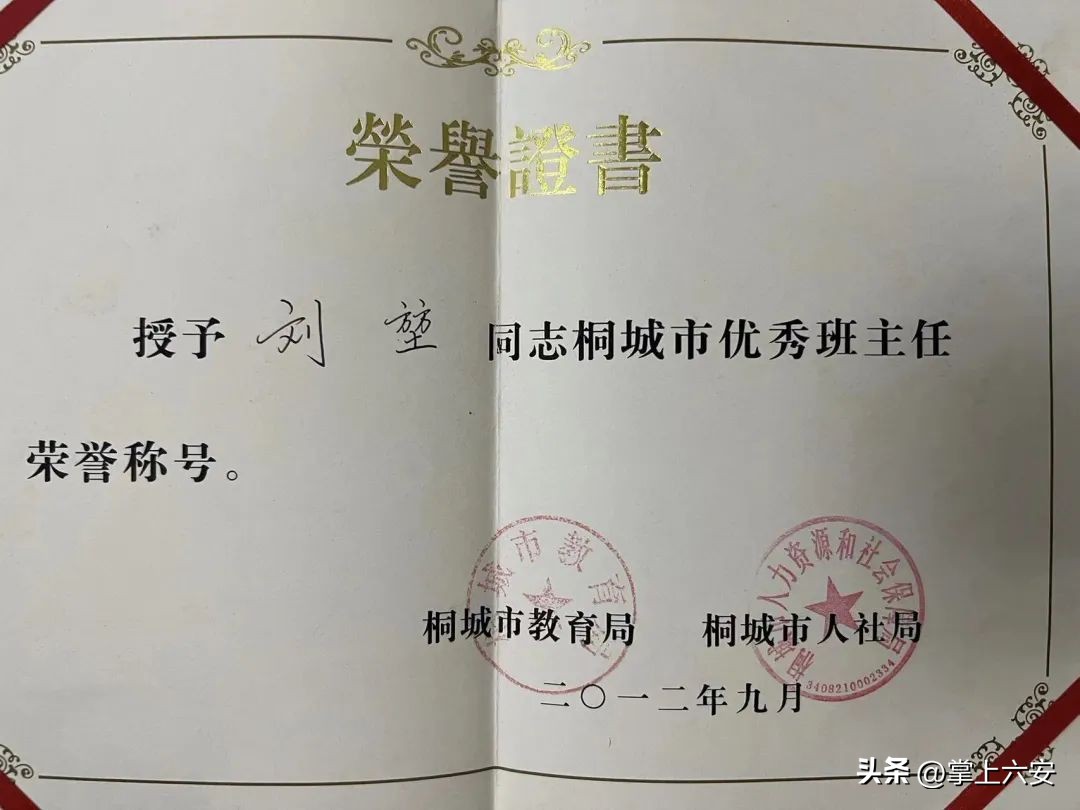 榮譽證書
授予 刘 堃 同志桐城市优秀班主任
荣誉称号。
城市教育
人力资源和社会保
桐城市教育局 桐城市人社局
3408210002334
二〇一二年九月
头条 @掌上六安